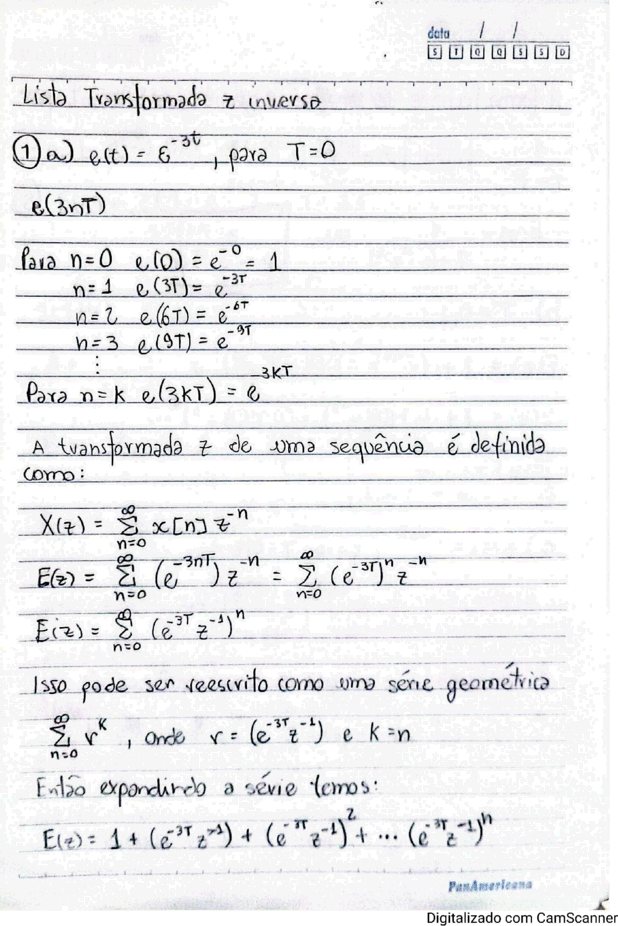 data / /
S T Q Q S S D
Lista Transformada z inversa
① a) e(t) = ε^{-3t}, para T=0
e(3nT)
Para n=0 e(0) = e^{-0} = 1
n=1 e(3T) = e^{-3T}
n=2 e(6T) = e^{-6T}
n=3 e(9T) = e^{-9T}
⋮
Para n=k e(3kT) = e^{-3KT}
A transformada z de uma sequência é definida
como:
X(z) = ∑_{n=0}^{∞} x[n] z^{-n}
E(z) = ∑_{n=0}^{∞} (e^{-3nT}) z^{-n} = ∑_{n=0}^{∞} (e^{-3T})^n z^{-n}
E(z) = ∑_{n=0}^{∞} (e^{-3T} z^{-1})^n
Isso pode ser reescrito como uma série geométrica
∑_{n=0}^{∞} r^k, onde r = (e^{-3T} z^{-1}) e k=n
Então expandindo a série temos:
E(z) = 1 + (e^{-3T} z^{-1}) + (e^{-3T} z^{-1})^2 + ... (e^{-3T} z^{-1})^n
PanAmericana
Digitalizado com CamScanner